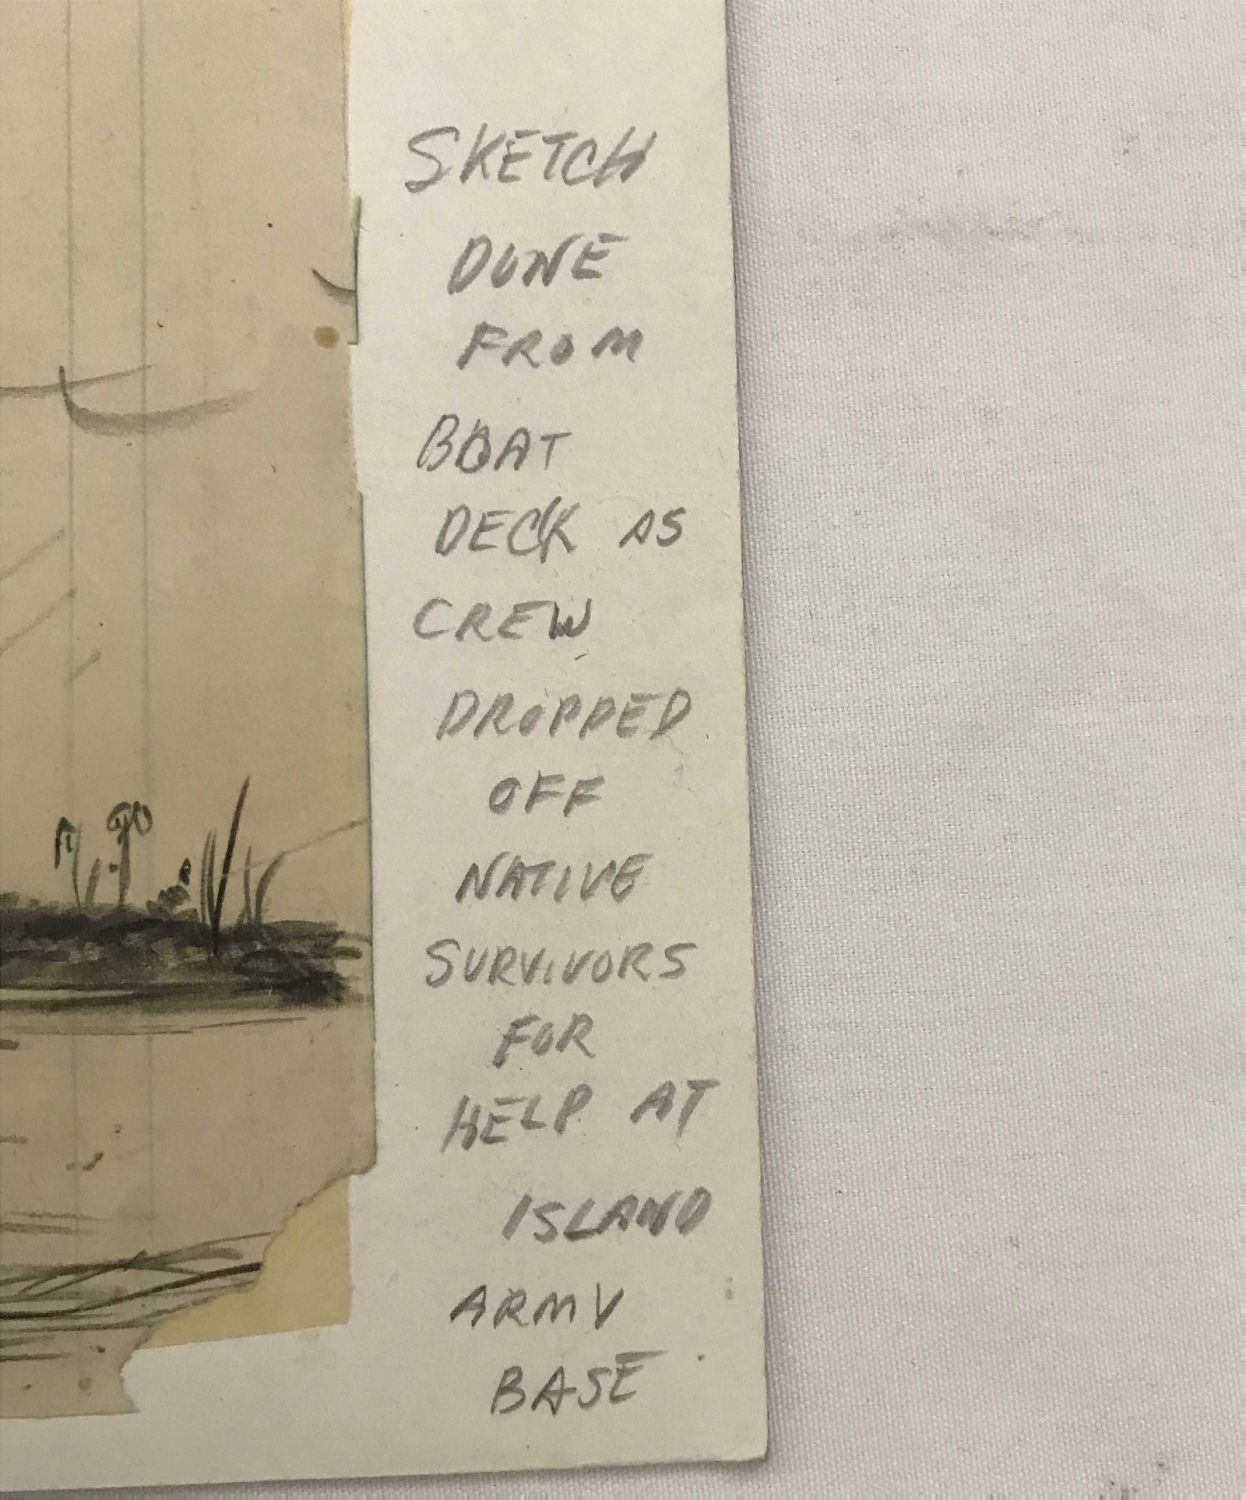 SKETCH
DONE
FROM
BOAT
DECK AS
CREW
DROPPED
OFF
NATIVE
SURVIVORS
FOR
HELP AT
ISLAND
ARMY
BASE